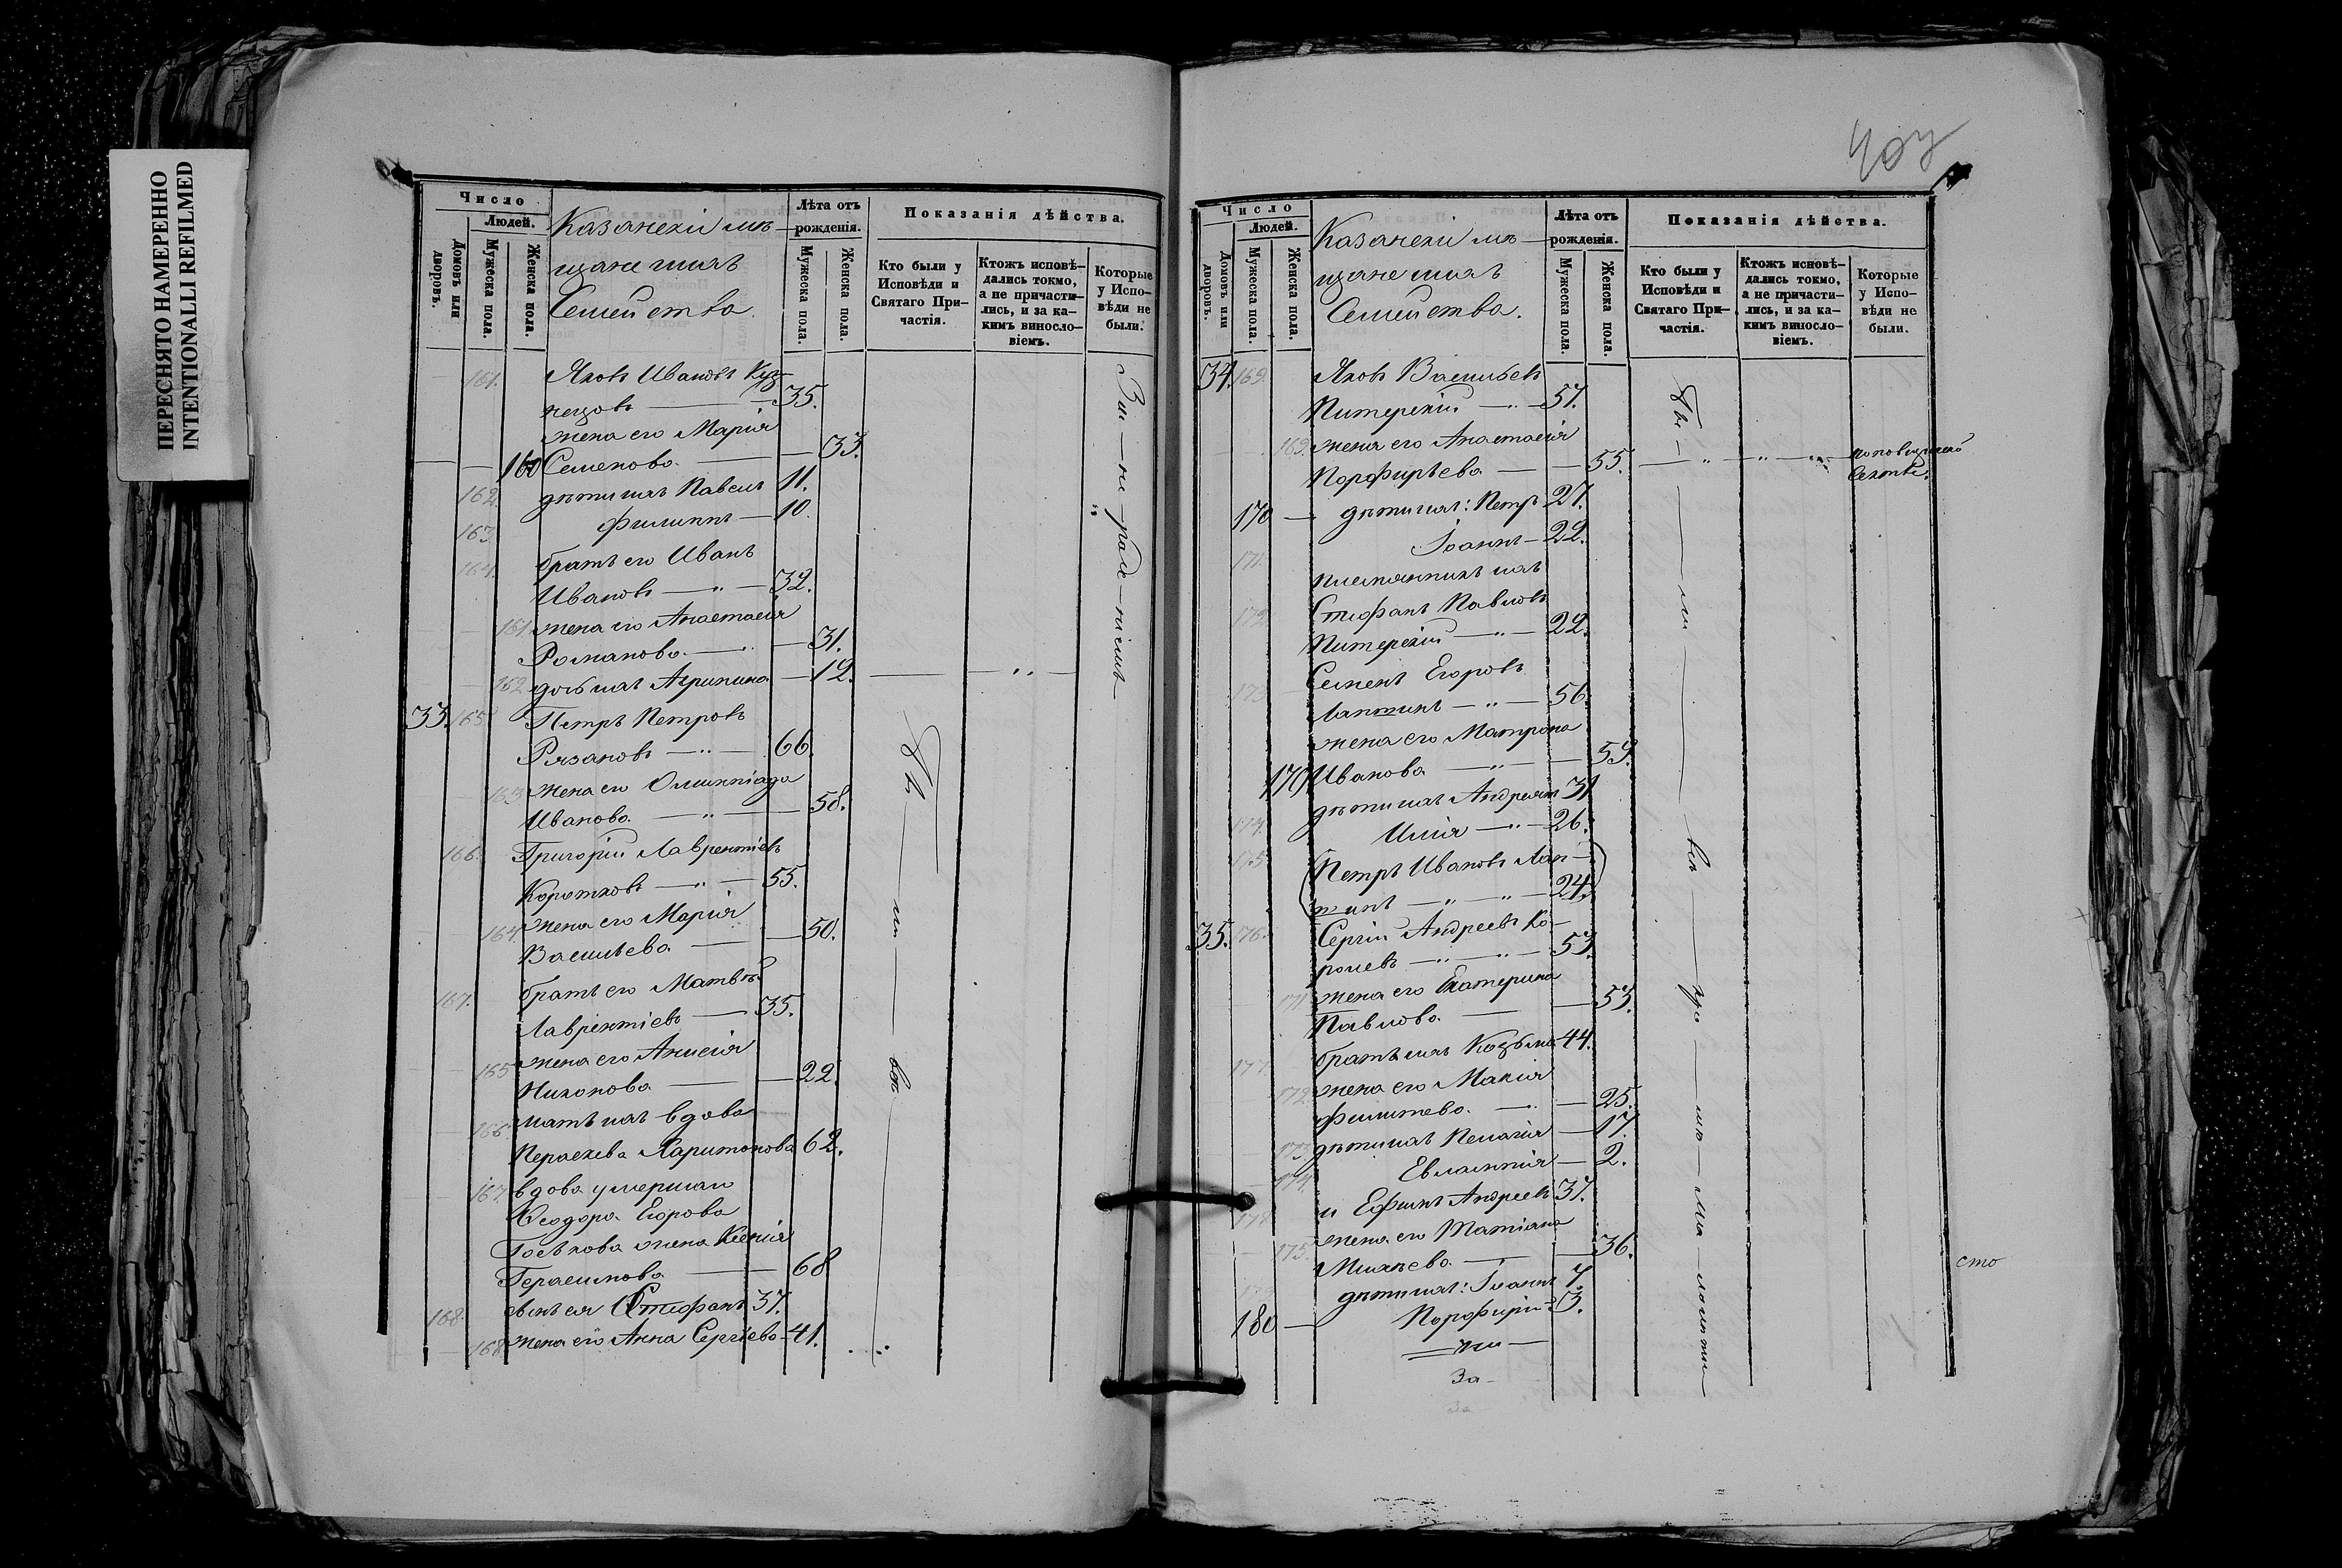 ПЕРЕСНЯТО НАМЕРЕННО
INTENTIONALLI REFILMED
Число
Людей.
Домовъ или дворовъ.
Мужеска пола.
Женска пола.
Казанскіи мѣ-
щане и ихъ
Семейства.
Лѣта отъ
рожденія.
Мужеска пола.
Женска пола.
Показанія дѣйства.
Кто были у
Исповѣди и
Святаго При-
частія.
Ктожъ исповѣ-
дались токмо,
а не причасти-
лись, и за ка-
кимъ винносло-
віемъ.
Которые
у Испо-
вѣди не
были.
161. Яковъ Ивановъ Куз-
нецовъ — 35.
жена его Марія
160 Семенова — 33.
162. дѣти ихъ Павелъ 11.
163. Филиппъ — 10.
164. братъ его Иванъ
Ивановъ — 32.
161. жена его Анастасія
Романова — 31.
162. дочь ихъ Агрипина — 12.
33. 165. Петръ Петровъ
Рязановъ — 66.
163. жена его Олимпіада
Иванова — 58.
166. Григорій Лаврентіевъ
Коротковъ — 55.
164. жена его Марія
Васильева — 50.
167. братъ его Матвѣй
Лаврентіевъ — 35.
165. жена его Анисія
Никонова — 22.
166. мать ихъ вдова
Параскева Харитонова 62.
167. вдова умершаго
Ѳеодора Егорова
жена Ксенія
Герасимова — 68
168. сынъ ея Стефанъ 37.
168. жена его Анна Сергіева 41.
Бы — ли — всѣ
407
Число
Людей.
Домовъ или дворовъ.
Мужеска пола.
Женска пола.
Казанскіи мѣ-
щане и ихъ
Семейства.
Лѣта отъ
рожденія.
Мужеска пола.
Женска пола.
Показанія дѣйства.
Кто были у
Исповѣди и
Святаго При-
частія.
Ктожъ исповѣ-
дались токмо,
а не причасти-
лись, и за ка-
кимъ винносло-
віемъ.
Которые
у Испо-
вѣди не
были.
34. 169. Яковъ Васильевъ
Питерскій — 57.
169. жена его Анастасія
Порфирьева — 55.
170 — дѣти ихъ: Петръ 27.
171. Іоаннъ — 22.
племянникъ ихъ
Стефанъ Павловъ
Питерскій — 22.
Семенъ Егоровъ
Лаптинъ — 56.
жена его Матрона
170 Иванова — 59.
дѣти ихъ Андреянъ 31
174. Илія — 26.
175. (Петръ Ивановъ Лап-
тинъ — 24.)
35. 176. Сергій Андреевъ Ко-
ролевъ — 53.
171. жена его Екатерина
Павлова — 53.
177. братъ ихъ Козьма 44.
172. жена его
— 25.
173. дѣти ихъ Пелагія — 17.
174. Евлампія — 2.
178. и Ефимъ Андреевъ 37.
175. жена его Татіана
— 36.
дѣти ихъ: Іоаннъ 7.
180 — Порфирій 3.
Бы — ли — всѣ
сто
За